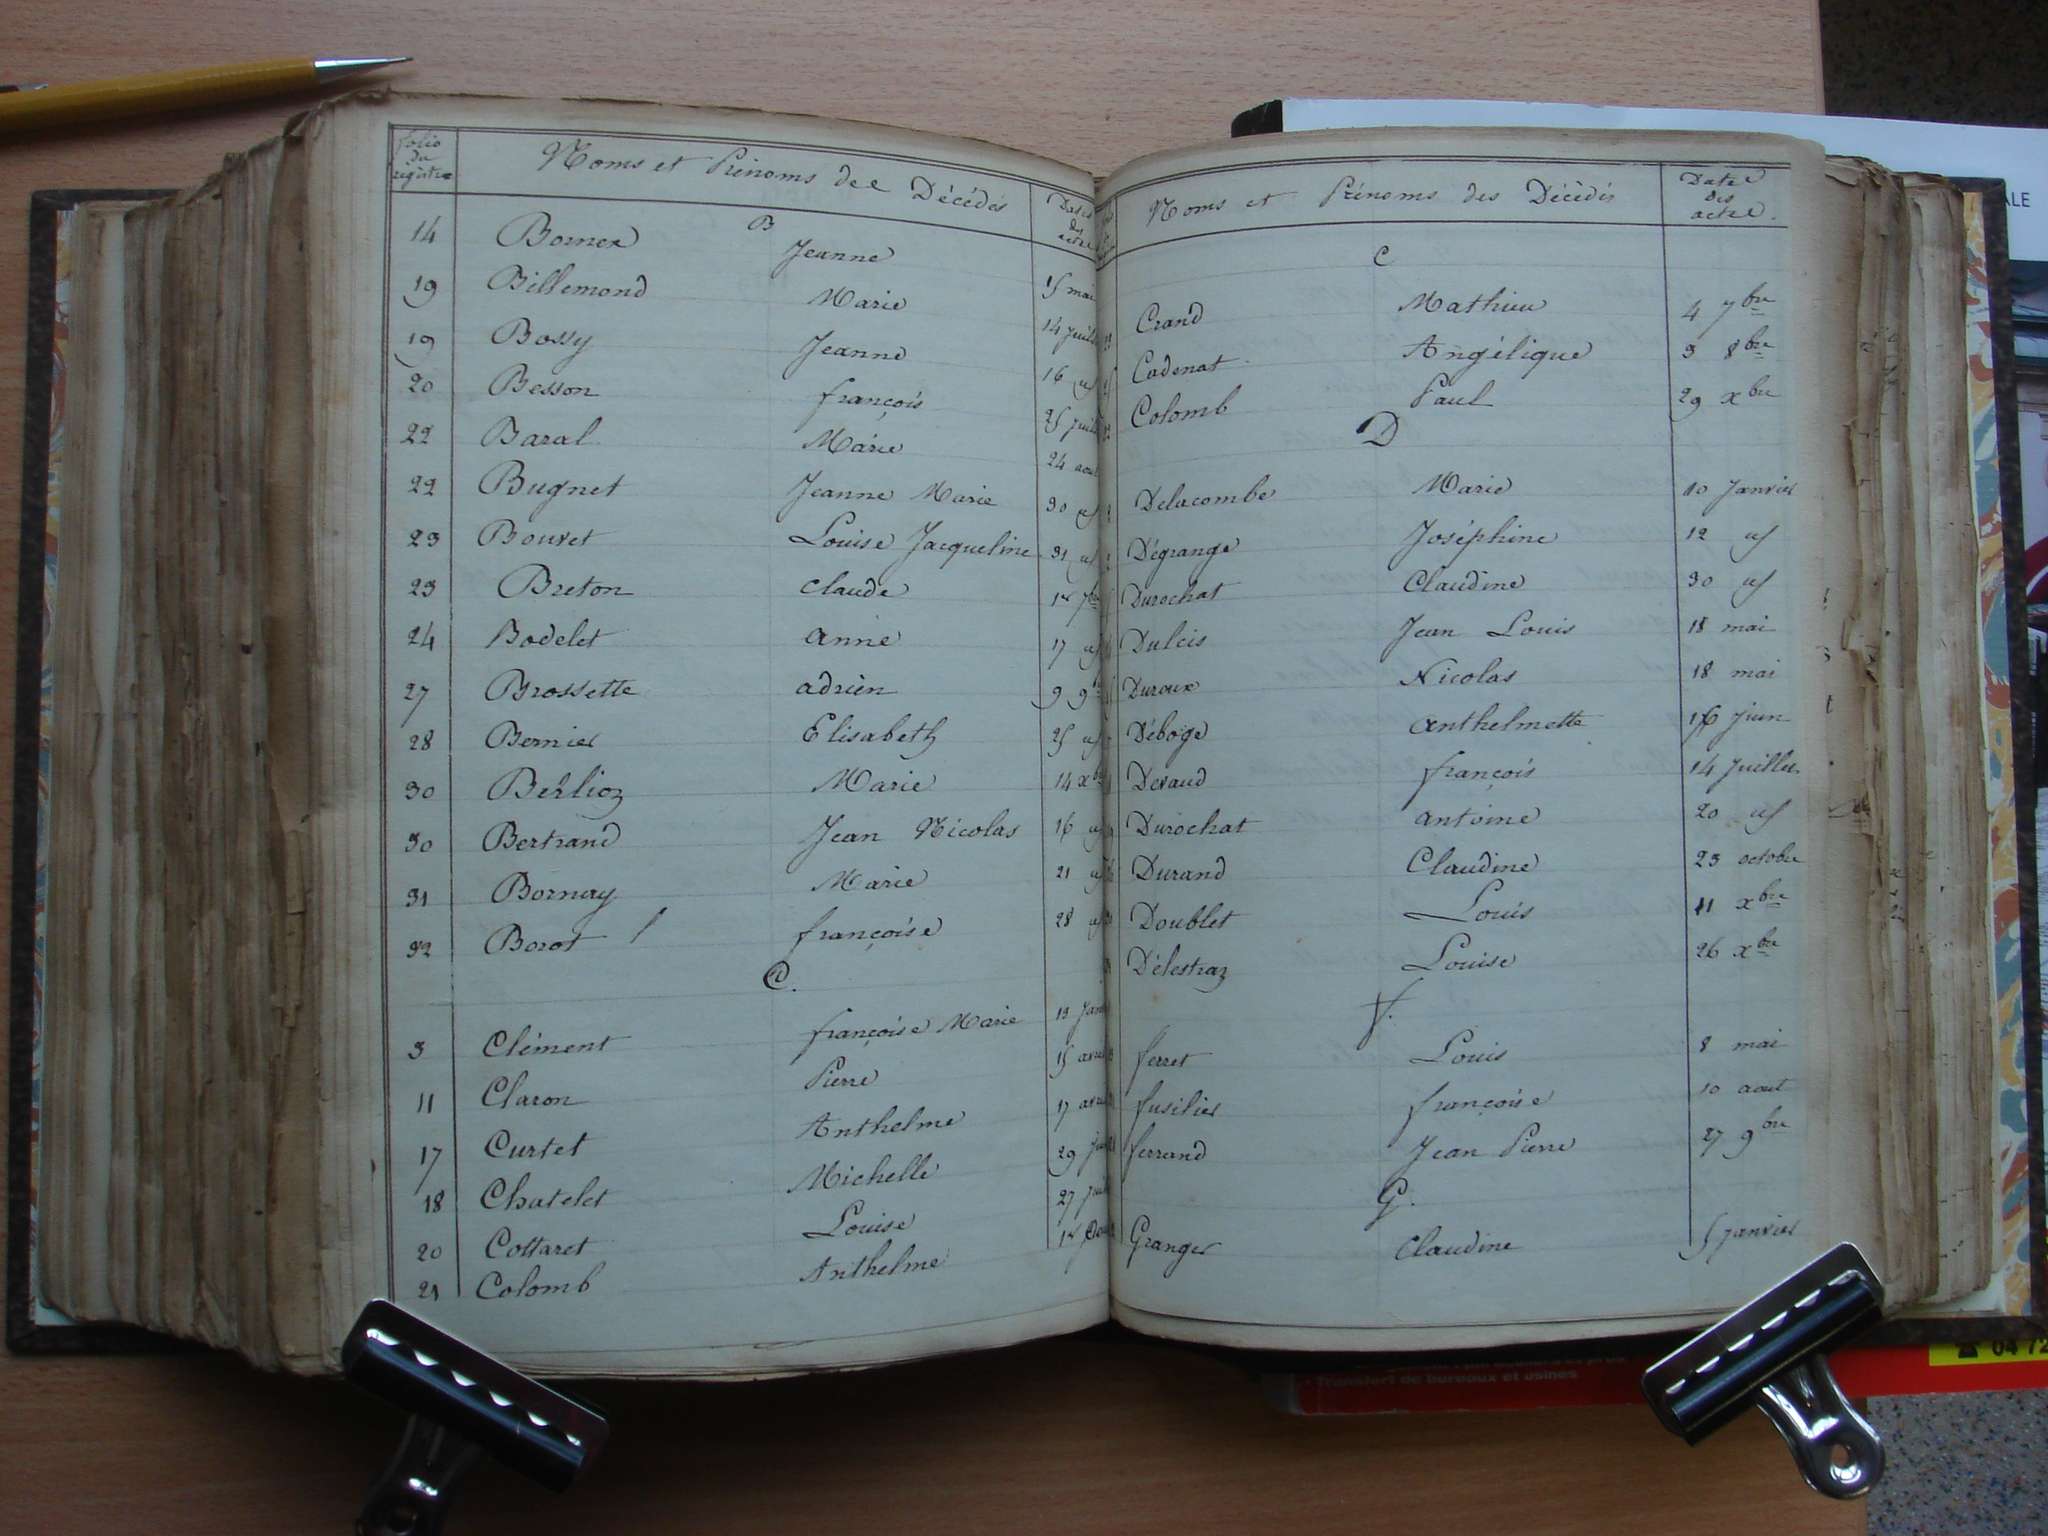 folio du registre Noms et Prénoms des Décédés Dates des actes
B
14 Bornex Jeanne 15 mai
19 Billemond Marie 14 Juill
19 Bossy Jeanne 16 id
20 Besson françois 25 Juill
22 Baral Marie 24 aout
22 Bugnet Jeanne Marie 30 id
23 Bouvet Louise Jacqueline 31 id
23 Breton Claude 1er 7bre
24 Bodelet anne 17 id
27 Brossette adrien 9 9b
28 Bernier Elisabeth 25 id
30 Berlioz Marie 14 xb
30 Bertrand Jean Nicolas 16 id
31 Bornay Marie 21 id
32 Borot françoise 28 id
C.
3 Clément françoise Marie 13 Janv
11 Claron Pierre 15 avril
17 Curtet Anthelme 17 avril
18 Chatelet Michelle 29 Juin
20 Cottaret Louise 27 Juill
21 Colomb Anthelme 1er aou
Noms et Prénoms des Décédés Date des actes.
C
Crand Mathieu 4 7bre
Cadenat Angélique 3 8bre
Colomb Paul 29 xbre
D
Delacombe Marie 10 Janvier
Dégrange Joséphine 12 id
Durochat Claudine 30 id
Dulcis Jean Louis 18 mai
Duroux Nicolas 18 mai
Déboge anthelmette 16 Juin
Devaud françois 14 Juillet
Durochat antoine 20 id
Durand Claudine 23 octobre
Doublet Louis 11 xbre
Délestraz Louise 26 xbre
f.
ferret Louis 8 mai
fusilier françoise 10 aout
ferrand Jean Pierre 27 9bre
G.
Granger Claudine 5 Janvier
ALE
Transfert de bureaux et usines
☎ 04 72